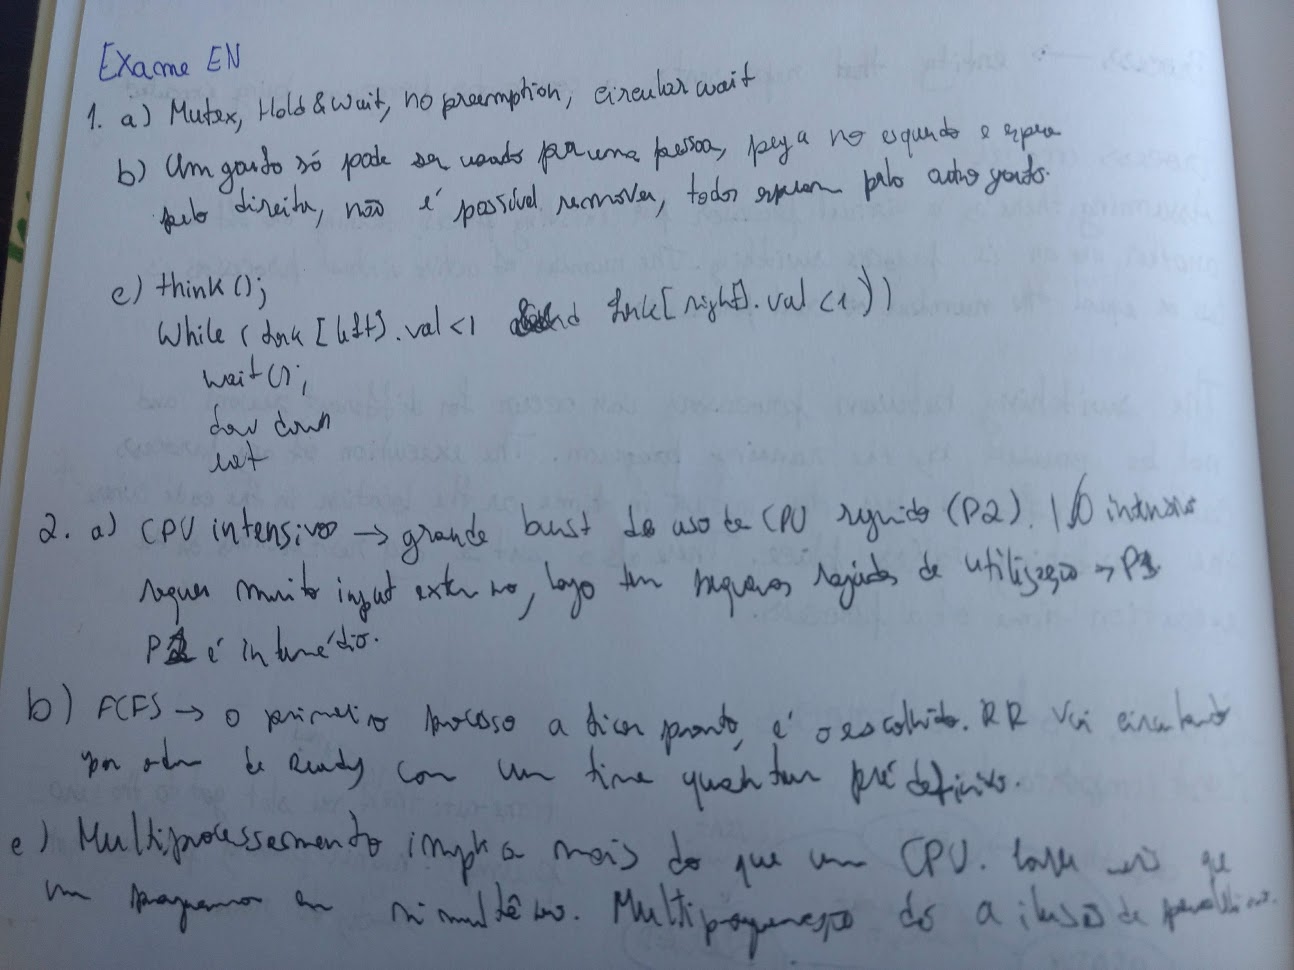 Exame EN
1. a) Mutex, Hold & Wait, no preemption, circular wait
b) Um garfo só pode ser usado por uma pessoa, pega no esquerdo e espera
pelo direita, não é possível remover, todos esperam pelo outro garfo.
c) think();
While (fork [left].val < 1 fork[right].val < 1))
wait();
down
2. a) CPU intensivo → grande burst de uso de CPU seguido (P2). I/O intensivo
requer muito input externo, logo tem pequenas rajadas de utilização → P3
é intermédio.
b) FCFS → o primeiro processo a ficar pronto, é o escolhido. RR vai circulando
por ordem de Ready com um time quantum pré definido.
c) Multiprocessamento implica mais do que um CPU. mais que
um programa em simultâneo. Multiprogramação dá a ilusão de paralelismo.